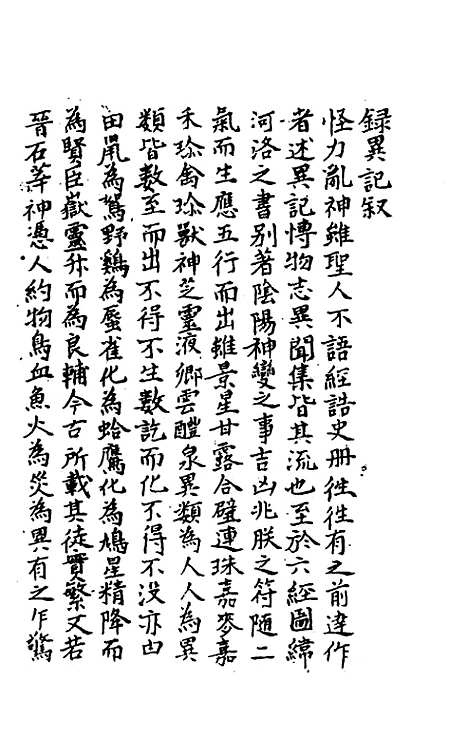 録異記叙
怪力亂神雖聖人不語經誥史冊徃徃有之前達作
者述異記博物志異聞集皆其流也至於六經圖緯
河洛之書别著陰陽神變之事吉凶兆朕之符随二
氣而生應五行而出雖景星甘露合璧連珠嘉麥嘉
禾珎禽珎獸神芝靈液卿雲醴泉異類為人人為異
類皆数至而出不得不生数訖而化不得不没亦由
田鼠為鴽野鷄為蜃雀化為蛤鷹化為鳩星精降而
為賢臣嶽靈升而為良輔今古所載其徒實繁又若
晉石莘神憑人約物鳥血魚火為災為異有之乍驚